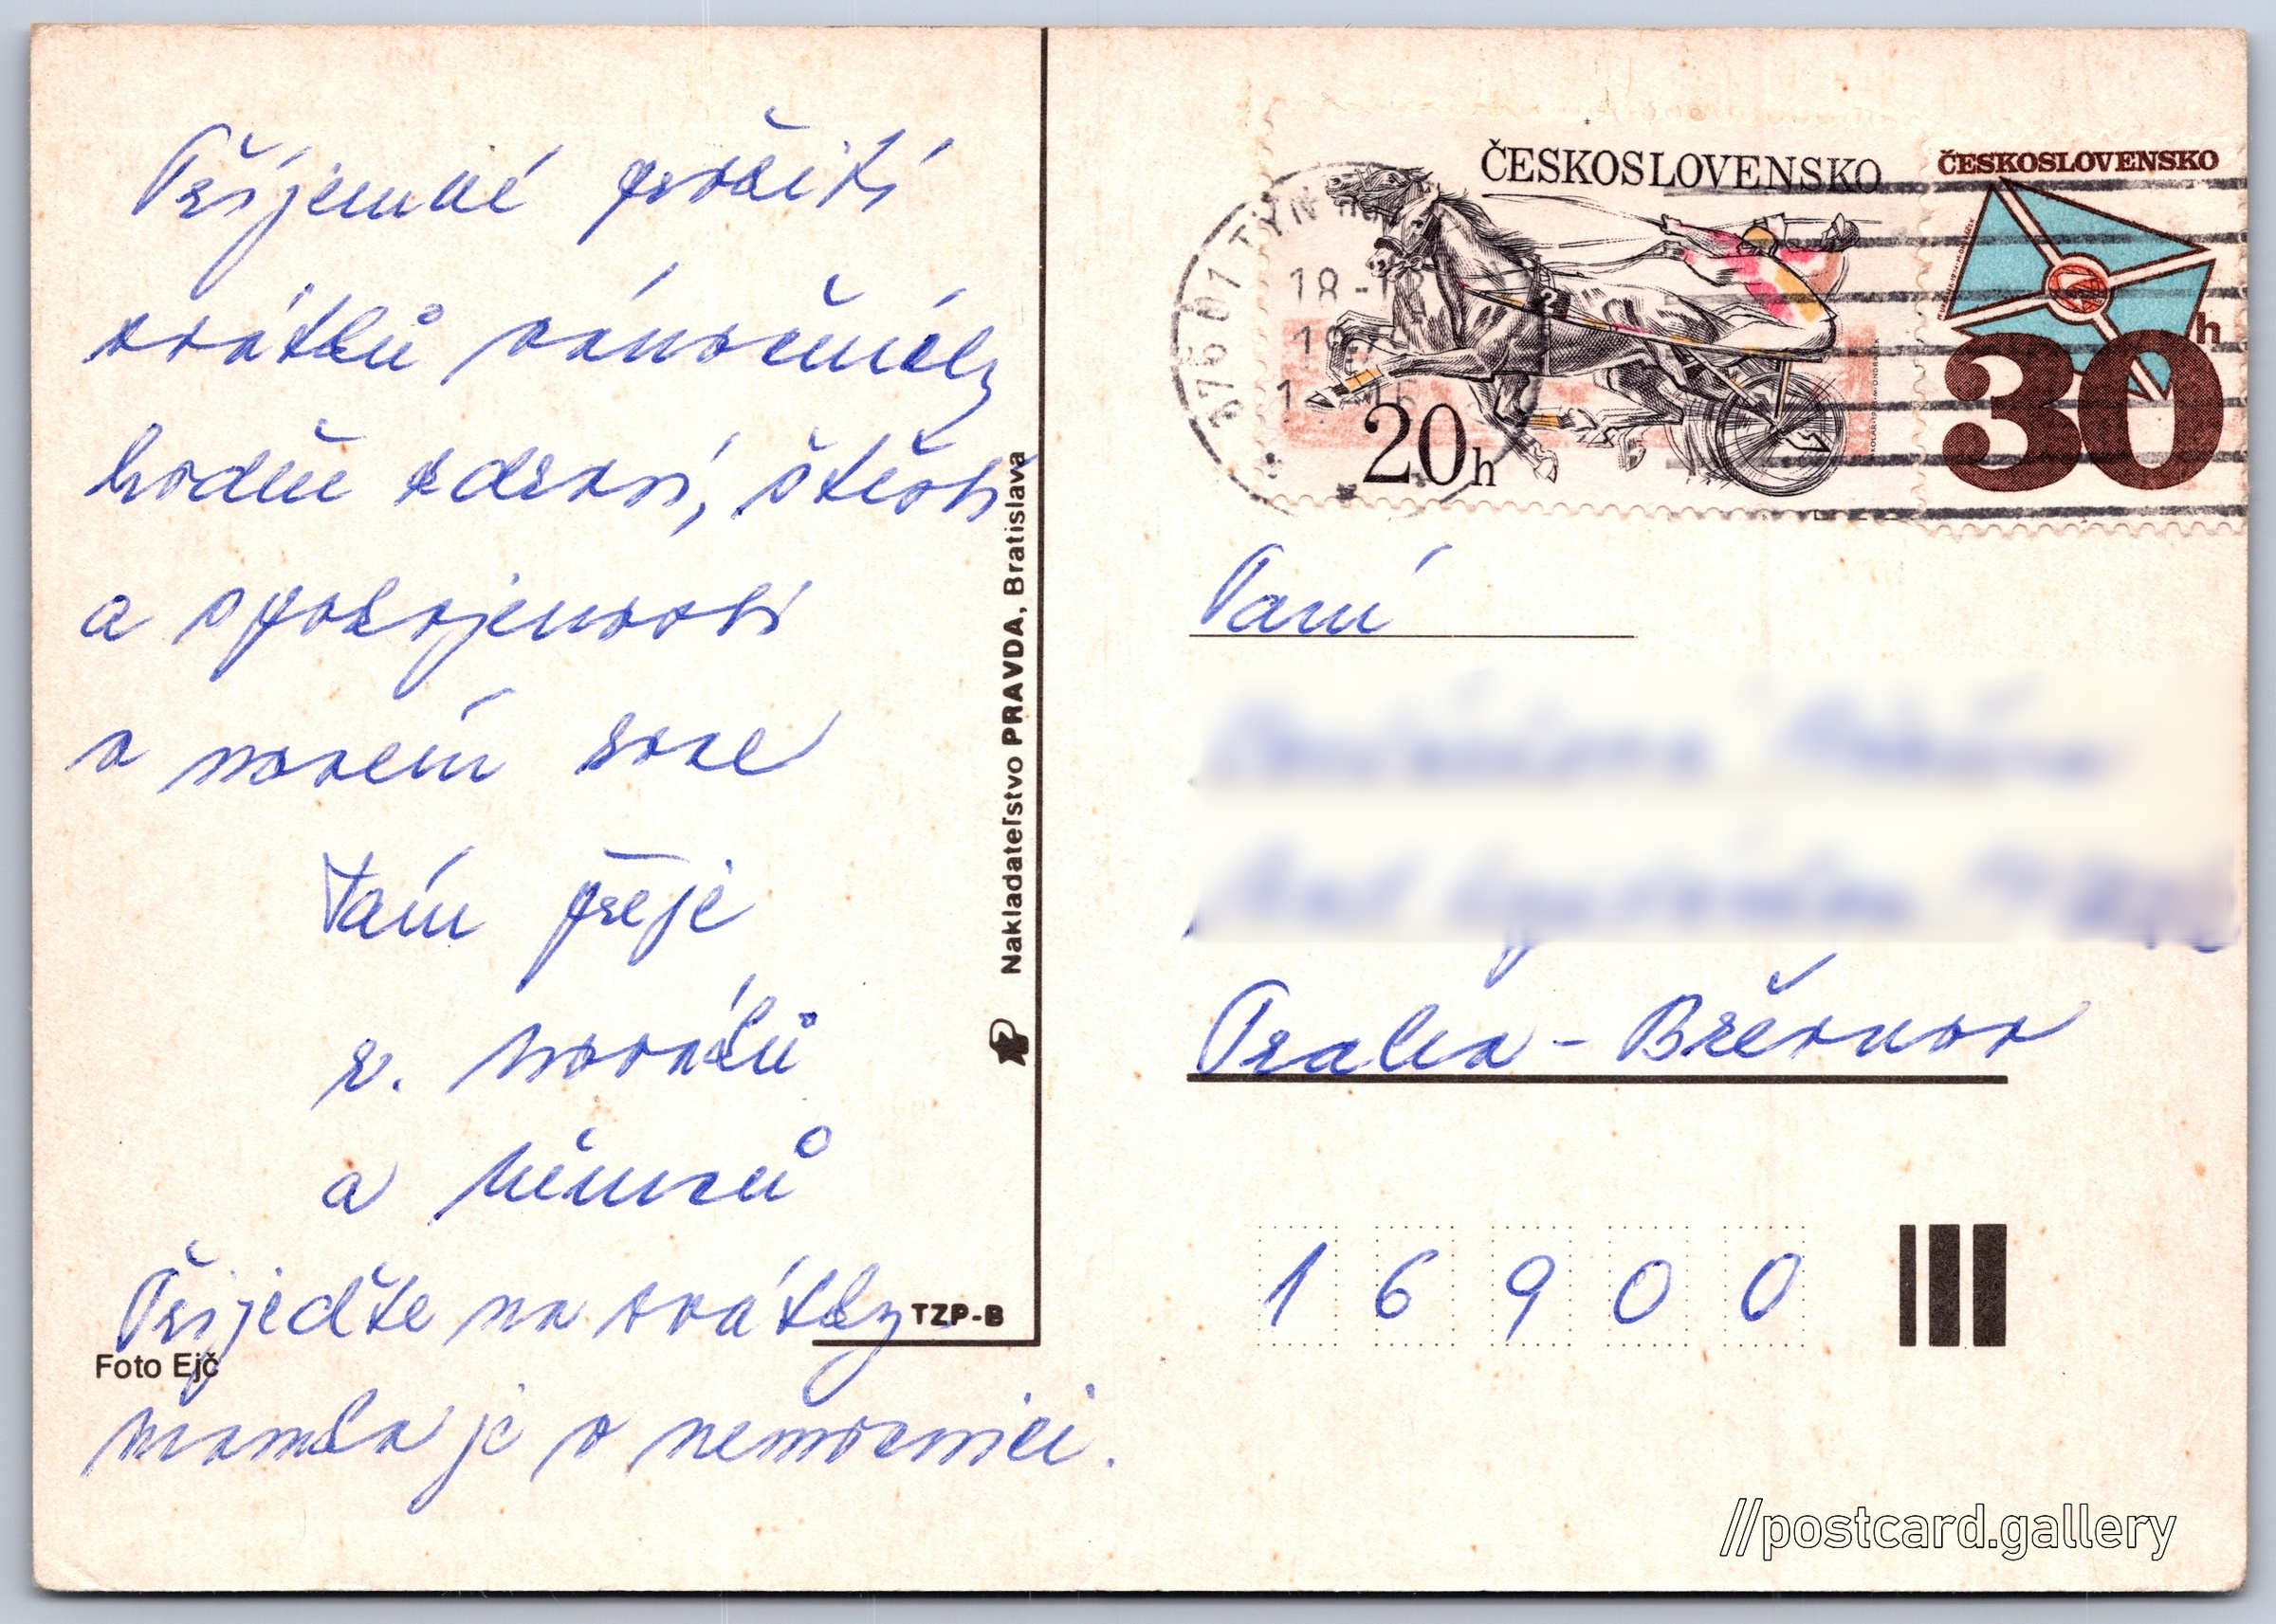 Příjemné prožití
svátků vánočních
hodně zdraví, štěstí
a spokojenosti
v novém roce
Vám přeje
r. Nováků
a Němců
Přijeďte na svátky
mamka je v nemocnici.
Foto Ejč
TZP-B
Nakladateľstvo PRAVDA, Bratislava
375 01 TÝN
18
ČESKOSLOVENSKO
20h
ČESKOSLOVENSKO
30h
Paní
Praha - Břevnov
1 6 9 0 0
//postcard.gallery